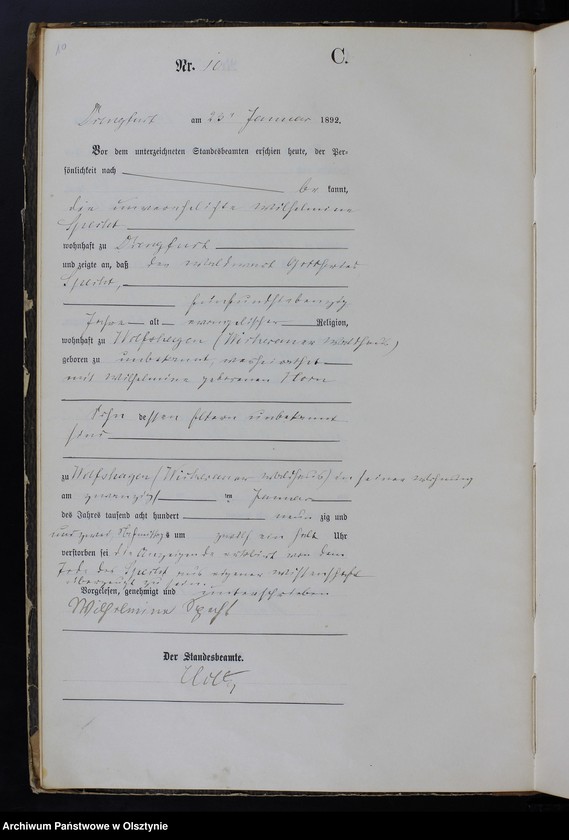 10
C.
Nr. 10
Drengfurt am 23t Januar 1892.
Vor dem unterzeichneten Standesbeamten erschien heute, der Per-
sönlichkeit nach
be kannt,
die unverehelichte Wilhelmine
Specht
wohnhaft zu Drengfurt
und zeigte an, daß der Waldwart Gottfried
Specht,
fünfundsiebenzig
Jahre alt evangelischer Religion,
wohnhaft zu Wolfshagen (Waldhaus)
geboren zu unbekannt, verheirathet
mit Wilhelmine geborenen Horn
Sohn dessen Eltern unbekannt
sind
zu Wolfshagen (Waldhaus) in seiner Wohnung
am zwanzigsten Januar
des Jahres tausend acht hundert neun zig und
zwei Nachmittags um ein halb Uhr
verstorben sei die Anzeigende erklärt von dem
Tode des Specht aus eigener Wissenschaft
überzeugt zu sein.
Vorgelesen, genehmigt und unterschrieben
Wilhelmine Specht
Der Standesbeamte.
Archiwum Państwowe w Olsztynie